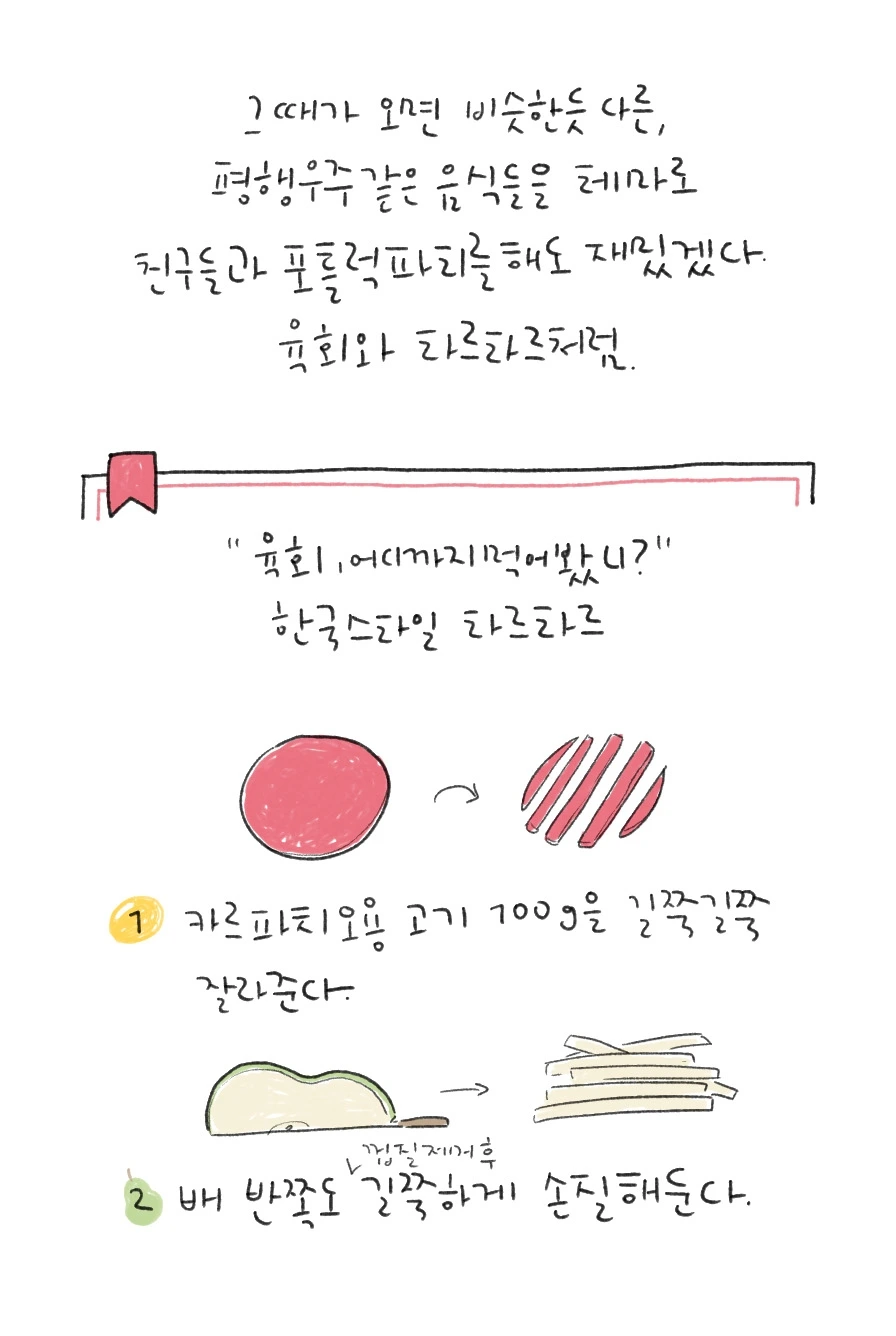 그때가 오면 비슷한듯 다른,
평행우주같은 음식들을 테마로
친구들과 포틀럭파티를해도 재밌겠다.
육회와 타르타르처럼.
"육회, 어디까지먹어봤니?"
한국스타일 타르타르
1 카르파치오용 고기 100g을 길쭉길쭉
잘라준다.
껍질제거후
2 배 반쪽도 길쭉하게 손질해둔다.